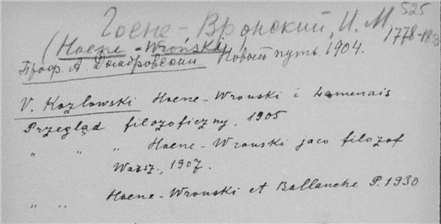 525
Гоене-Вронский, И. М.
(Hoene-Wroński) 1778-18
Проф. А. Домбровский Новый путь. 1904.
V. Kozlowski Hoene-Wronski i Lamenais
Przegląd filozoficzny. 1905
" " " Hoene-Wronski jaco filozof
Warsz., 1907.
" " Hoene-Wronski et Ballanche P. 1930